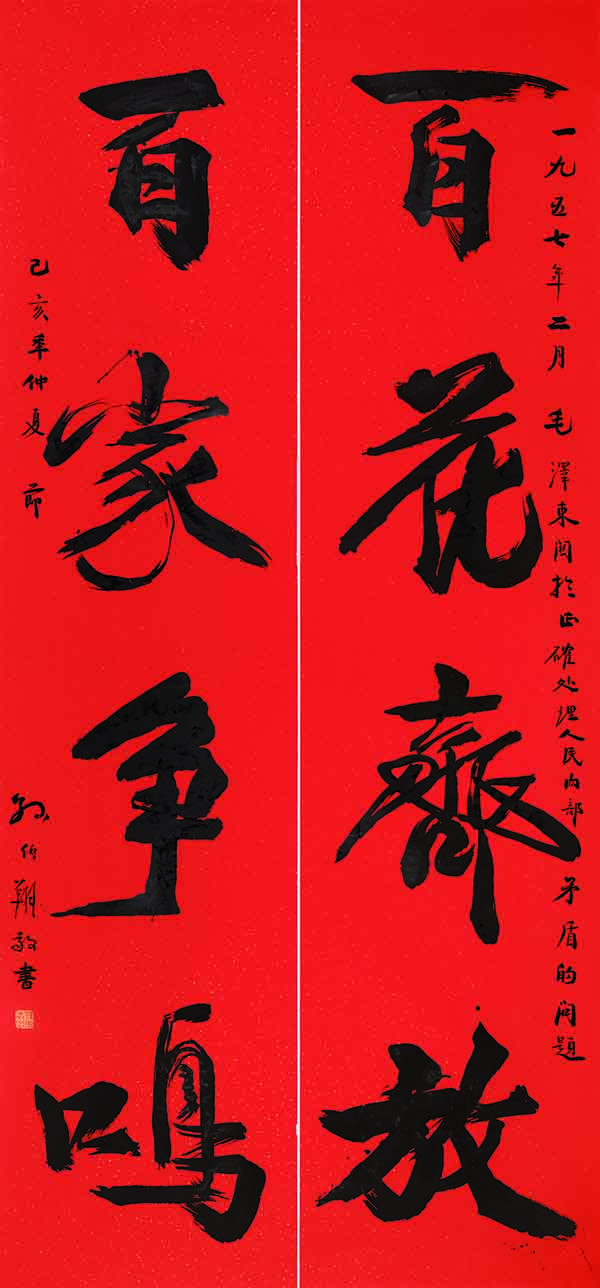 一九五七年二月 毛澤東関於正確处理人民内部矛盾的问題
百花齊放
百家争鳴
己亥年仲夏節
孙伯翔敬書